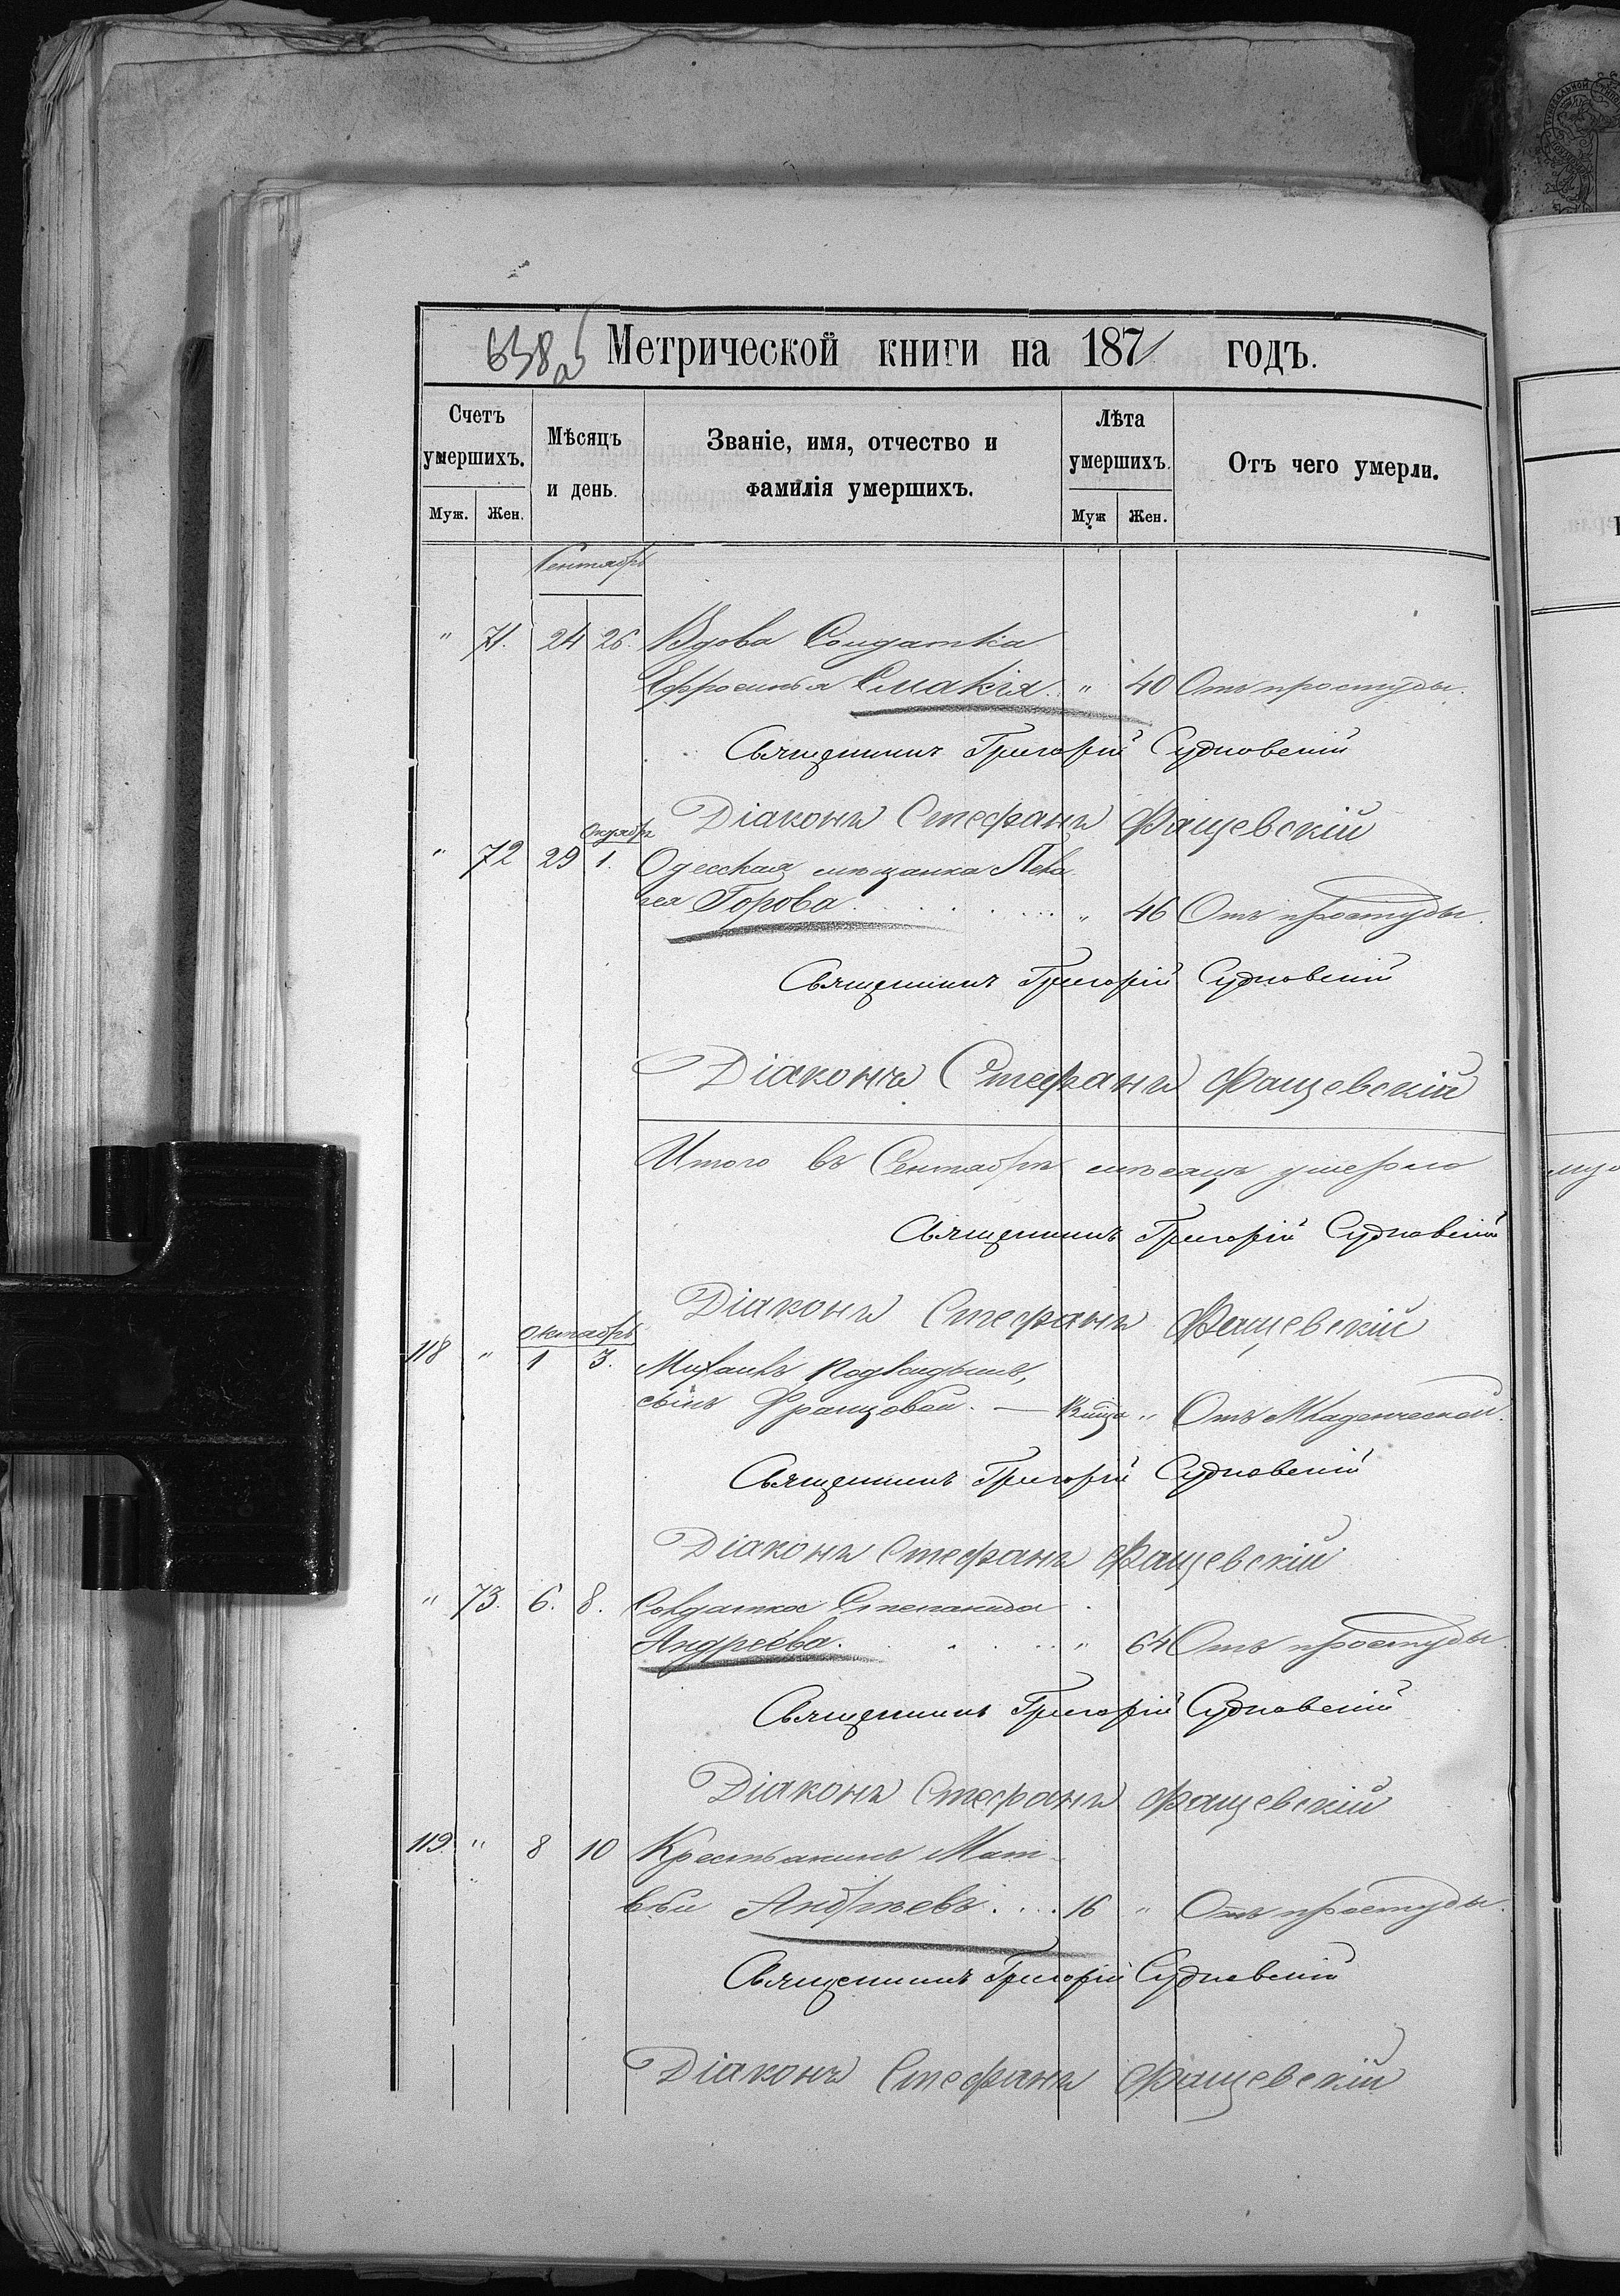 638 Метрической книги на 1871 годъ.
Счетъ умершихъ. Мѣсяцъ и день. Званіе, имя, отчество и фамилія умершихъ. Лѣта умершихъ. Отъ чего умерли.
Муж. Жен. Муж Жен.
Сентябрь
" 71. 24 26. Вдова Солдатка
Ефросинья " 40 Отъ простуды.
Священникъ Григорій Судковскій
Діаконъ Стефанъ Фащевскій
Октябрь
" 72 29 1. Одесская мѣщанка Пела
гея Горова " 46 Отъ простуды.
Священникъ Григорій Судковскій
Діаконъ Стефанъ Фащевскій
Итого въ Сентябрѣ мѣсяцѣ умерло
Священникъ Григорій Судковскій
Діаконъ Стефанъ Фащевскій
Октябрь
118 " 1 3. Михаилъ подкидышъ,
сынъ " Отъ Младенческой.
Священникъ Григорій Судковскій
Діаконъ Стефанъ Фащевскій
" 73. 6. 8. Солдатка Степанида
Андреева. " 64 Отъ простуды.
Священникъ Григорій Судковскій
Діаконъ Стефанъ Фащевскій
119. " 8 10 Крестьянинъ Мат-
вѣй Андреевъ. 16 " Отъ простуды.
Священникъ Григорій Судковскій
Діаконъ Стефанъ Фащевскій